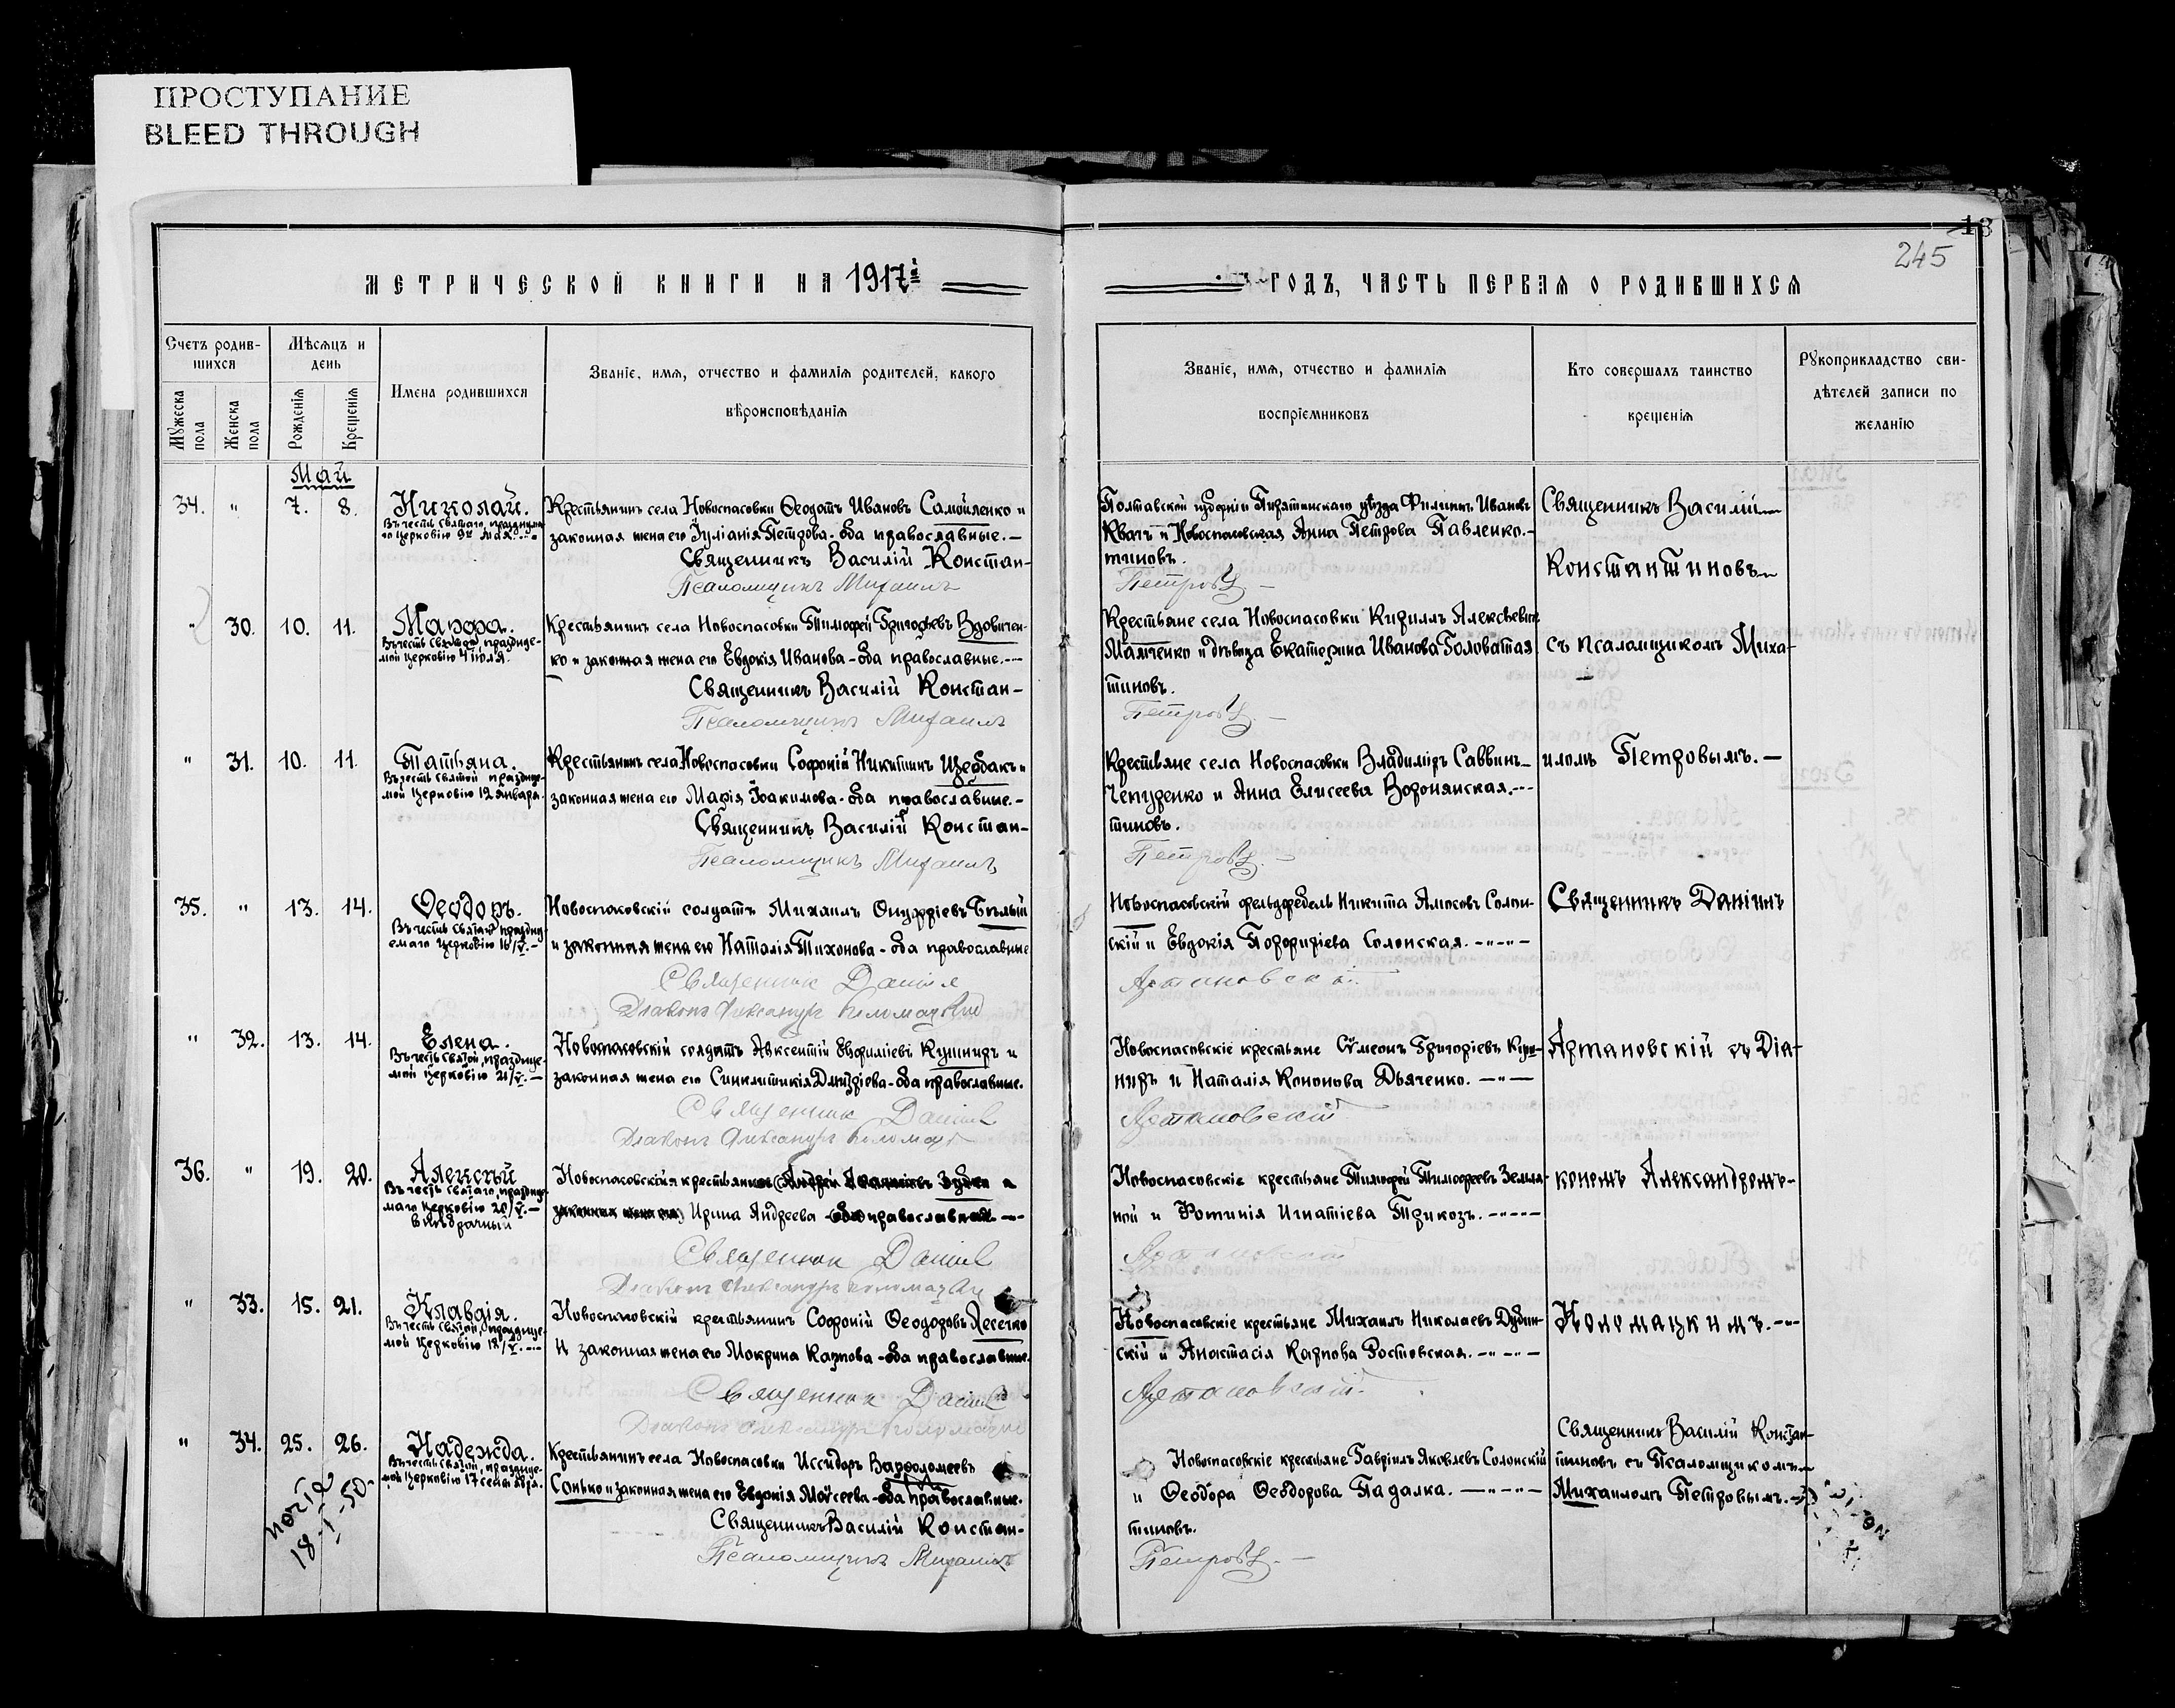 ПРОСТУПАНИЕ
BLEED THROUGH
18
245
МЕТРИЧЕСКОЙ КНИГИ НА 1917й
ГОДЪ, ЧАСТЬ ПЕРВАЯ О РОДИВШИХСЯ
Счетъ родив-
шихся
Мужеска пола
Женска пола
Мѣсяцъ и
день
Рожденія
Крещенія
Имена родившихся
Званіе, имя, отчество и фамилія родителей, какого
вѣроисповѣданія
Званіе, имя, отчество и фамилія
воспріемниковъ
Кто совершалъ таинство
крещенія
Рукоприкладство сви-
дѣтелей записи по
желанію
Май
34. " 7. 8. Николай.
Въ честь святаго, праздnуема-
го Церковію 9го Мая.
Крестьянинъ села Новоспасовки Ѳеодотъ Ивановъ Самойленко и
законная жена его Іуліанія Петрова - оба православные. -
Священникъ Василій Констан-
Псаломщикъ Михаилъ
Полтавской губерніи Пирятинскаго уѣзда Филиппъ Ивановъ
Квачъ и Новоспасовская Анна Петрова Павленко. -
тиновъ.
Петровъ. -
Священникъ Василій
Константиновъ
" 30. 10. 11. Марѳа.
Въ честь святой, праздnуе-
мой Церковію 4 іюля.
Крестьянинъ села Новоспасовки Тимофей Григорьевъ Вдовичен-
ко и законная жена его Евдокія Иванова - оба православные. --
Священникъ Василій Констан-
Псаломщикъ Михаилъ
Крестьяне села Новоспасовки Кириллъ Алексѣевичъ
Мамченко и дѣвица Екатерина Иванова Головатая
тиновъ.
Петровъ. -
съ псаломщикомъ Миха-
" 31. 10. 11. Татьяна.
Въ честь святой праздnуе-
мой Церковію 12 января.
Крестьянинъ села Новоспасовки Софоній Никитинъ и
законная жена его Марія Іоакимова - оба православные. -
Священникъ Василій Констан-
Псаломщикъ Михаилъ
Крестьяне села Новоспасовки Владиміръ Саввинъ
Чепуренко и Анна Елисеева Воронянская. ---
тиновъ.
Петровъ. -
иломъ Петровымъ. -
35. " 13. 14. Ѳеодотъ.
Въ честь святаго праздnу-
емаго Церковію 18/V. -
Новоспасовскій солдатъ Михаилъ Онуфріевъ Бѣлый
и законная жена его Наталія Тихонова - оба православные
Священник Даниил
Діаконъ Александръ Коломацкій
Новоспасовскій фельдфебель Никита Солон-
скій и Евдокія Порфиріева Солонская. -"-"-
Артановскій.
Священникъ Даніилъ
" 32. 13. 14. Елена.
Въ честь святой, праздnуе-
мой Церковію 21/V. -
Новоспасовскій солдатъ Авксентій Евфиміевъ Кушниръ и
законная жена его Синклитикія Дмитріева - оба православные.
Священник Даниил
Діаконъ Александръ Коломацк
Новоспасовскіе крестьяне Сѵмеонъ Григоріевъ Куш-
ниръ и Наталія Кононова Дьяченко. -"-
Артановскій
Артановскій съ Діа-
36. " 19. 20. Алексѣй
Въ честь святаго, праздnуе-
маго Церковію 20/V. -
внѣбрачный
Новоспасовская крестьянка
Ирина Андреева православная --
Священник Даниил
Діаконъ Александръ Коломацкій
Новоспасовскіе крестьяне Тимофей Тимофеевъ Земля-
ной и Фотинія Игнатіева Трикозъ. -----
Артановскій
кономъ Александромъ-
" 33. 15. 21. Клавдія.
Въ честь святой, праздnуе-
мой Церковію 18/V. --
Новоспасовскій крестьянинъ Софроній Ѳеодоровъ Лесечко
и законная жена его Мокрина Карпова - оба православные.
Священник Даниил
Діаконъ Александръ Коломацкій
Новоспасовскіе крестьяне Михаилъ Николаевъ Дубин-
скій и Анастасія Карпова Ростовская. -"-"-
Артановскій.
Коломацкимъ. ---
" 34. 25. 26. Надежда.
Въ честь святой, праздnуе-
мой Церковію 17 сентября.
18-I-50.
Крестьянинъ села Новоспасовки Исидоръ Варфоломеевъ
Сонько и законная жена его Евдокія Моѵсеева - оба православные.
Священникъ Василій Констан-
Псаломщикъ Михаилъ
Новоспасовскіе крестьяне Гавріилъ Яковлевъ Солонскій
и Ѳеодора Ѳеодорова Падалка. -"-"-
тиновъ.
Петровъ. -
Священникъ Василій Констан-
тиновъ съ Псаломщикомъ
Михаиломъ Петровымъ. -